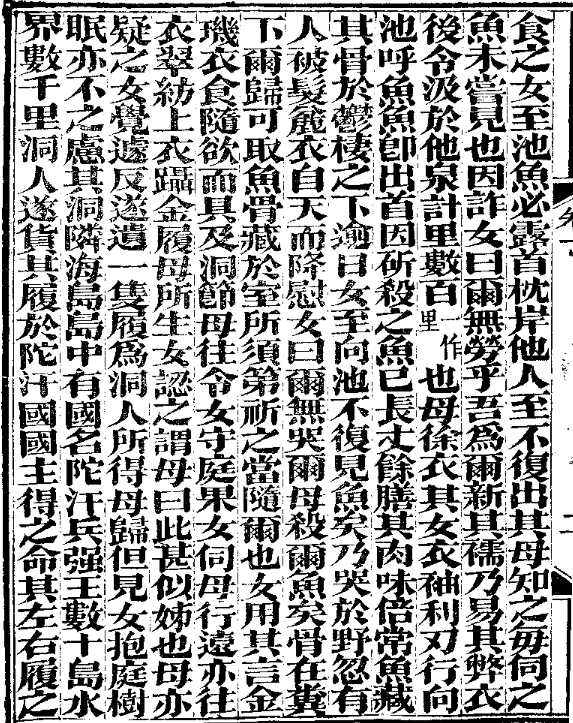 食之女至池魚必露首枕岸他人至不復出其母知之毎伺之
魚未嘗見也因詐女曰爾無勞乎吾爲爾新其襦乃易其弊衣
後令汲於他泉計里數百一作里也母徐衣其女衣袖利刃行向
池呼魚魚卽出首因斫殺之魚已長丈餘膳其肉味倍常魚藏
其骨於鬱棲之下逾日女至向池不復見魚矣乃哭於野忽有
人破髮麄衣自天而降慰女曰爾無哭爾母殺爾魚矣骨在糞
下爾歸可取魚骨藏於室所須第祈之當隨爾也女用其言金
璣衣食隨欲而具及洞節母往令女守庭果女伺母行遠亦往
衣翠紡上衣躡金履母所生女認之謂母曰此甚似姊也母亦
疑之女覺遽反遂遺一隻履爲洞人所得母歸但見女抱庭樹
眠亦不之慮其洞隣海島島中有國名陀汗兵强王數十島水
界數千里洞人遂貨其履於陀汗國國主得之命其左右履之